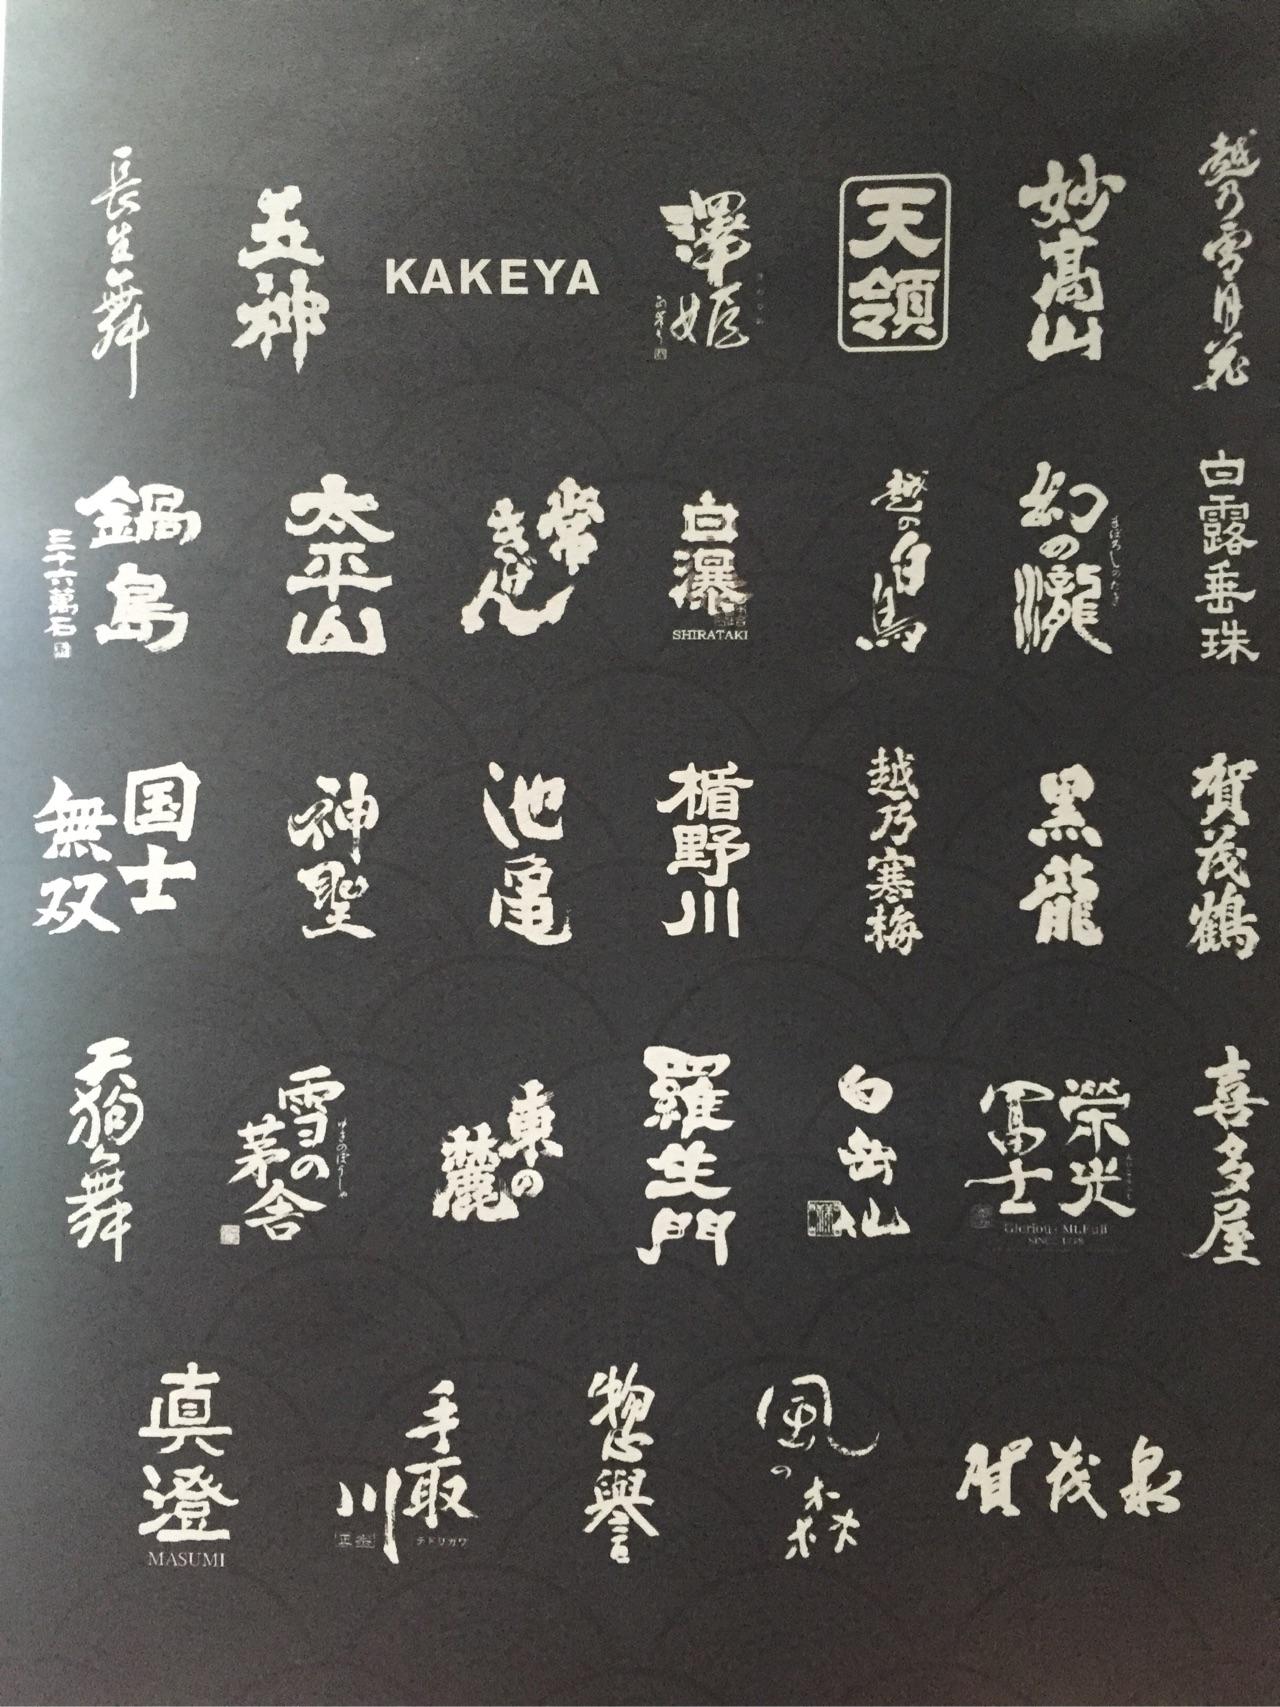 長生舞
五神
KAKEYA
澤姫
天領
妙高山
越乃雪月花
鍋島
三十六萬石
太平山
常きげん
白瀑
SHIRATAKI
越の白鳥
幻の瀧
まぼろしのたき
白露垂珠
国士無双
神聖
池亀
楯野川
越乃寒梅
黒龍
賀茂鶴
天狗舞
雪の茅舎
ゆきのぼうしゃ
東の麓
羅生門
白岳仙
榮光冨士
Glorious Mt.Fuji
喜多屋
真澄
MASUMI
手取川
テドリガワ
惣譽
風の森
賀茂泉